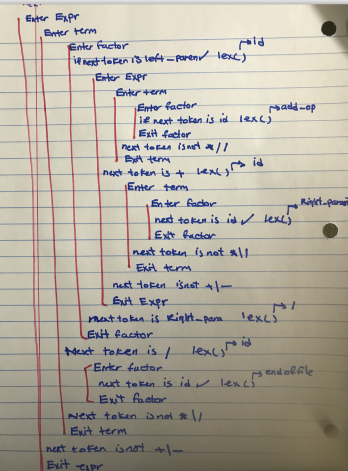 Enter Expr
Enter term
Enter factor id
if next token is left_paren ✓ lex()
Enter Expr
Enter term
Enter factor add_op
if next token is id lex()
Exit factor
next token is not * / /
Exit term
next token is + lex() id
Enter term
Enter factor Right_paran
next token is id ✓ lex()
Exit factor
next token is not * / /
Exit term
next token is not + / -
Exit Expr
next token is Right_para lex() /
Exit factor
Next token is / lex() id
Enter factor
next token is id ✓ lex() end of file
Exit factor
Next token is not * / /
Exit term
next token is not + / -
Exit expr